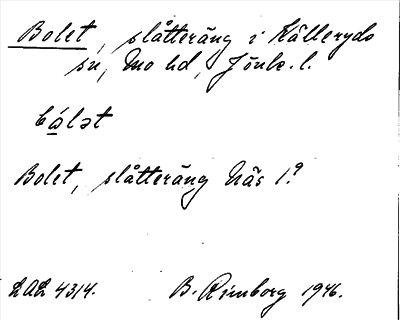 Bolet, slåtteräng i Kålleryds
sn, Mo hd, Jönk. l.
bólət
Bolet, slåtteräng Näs 1?
LAL 4314.
B. Rimborg 1946.